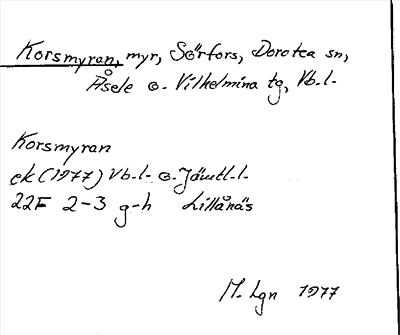 Korsmyran, myr, Sörfors, Dorotea sn,
Åsele o. Vilhelmina tg, Vb.l.
Korsmyran
ek (1977) Vb.l. o. Jämtl.l.
22F 2-3 g-h Lillånäs
M. Lgn 1977